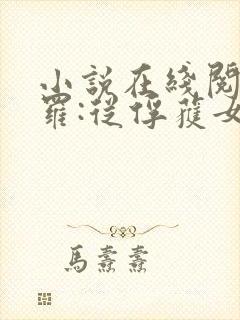 小說在綫閱
羅:從俘獲女
馬燾燾